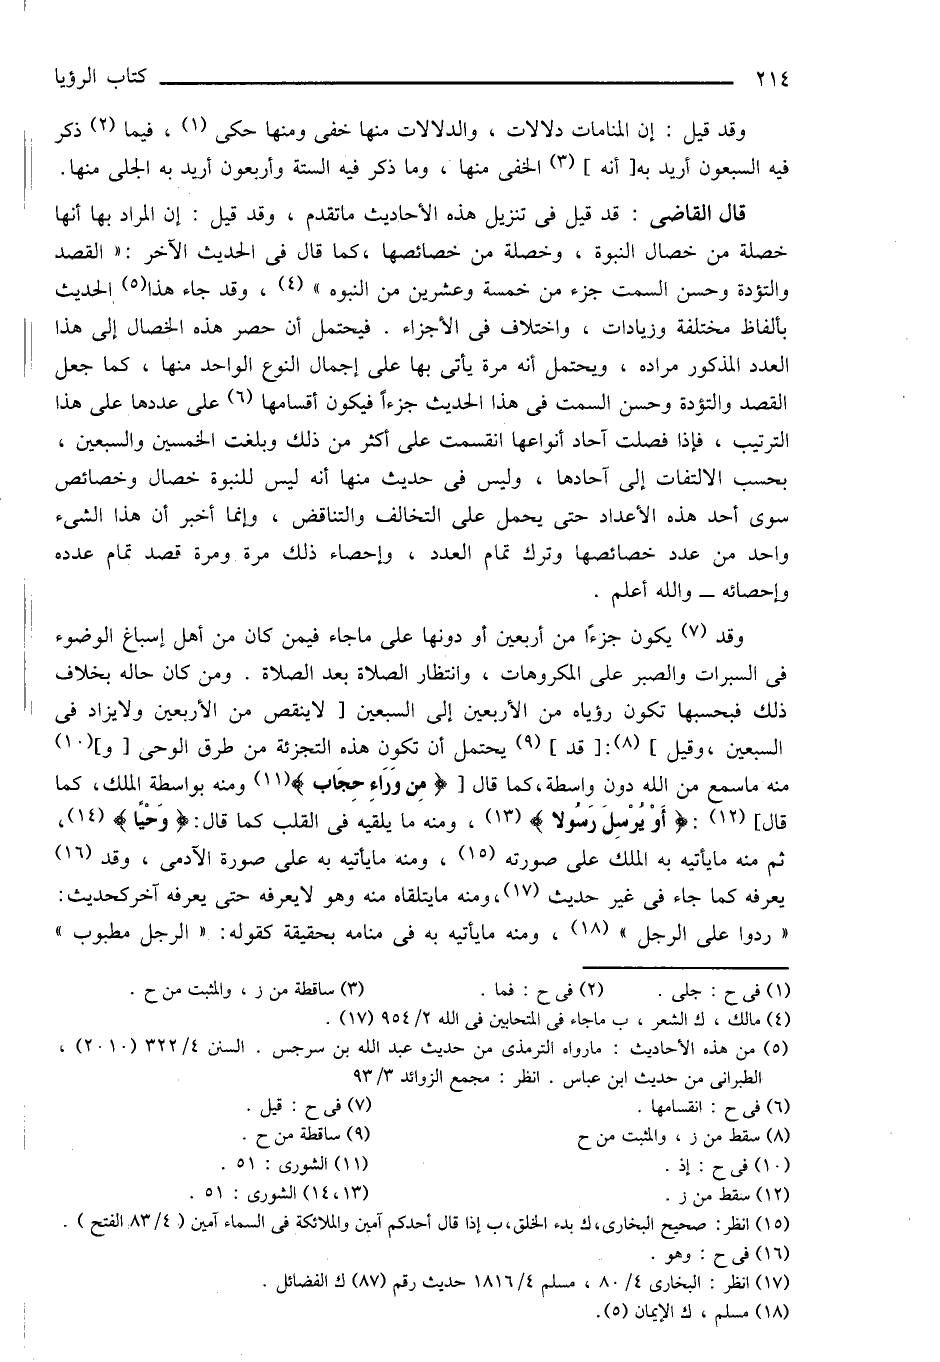 ٢١٤ كتاب الرؤيا
وقد قيل : إن المنامات دلالات ، والدلالات منها خفى ومنها حكى (١) ، فيما (٢) ذكر
فيه السبعون أريد به[ أنه ] (٣) الخفى منها ، وما ذكر فيه الستة وأربعون أريد به الجلى منها.
قال القاضى : قد قيل فى تنزيل هذه الأحاديث ماتقدم ، وقد قيل : إن المراد بها أنها
خصلة من خصال النبوة ، وخصلة من خصائصها ،كما قال فى الحديث الآخر :« القصد
والتؤدة وحسن السمت جزء من خمسة وعشرين من النبوه » (٤) ، وقد جاء هذا(٥) الحديث
بألفاظ مختلفة وزيادات ، واختلاف فى الأجزاء . فيحتمل أن حصر هذه الخصال إلى هذا
العدد المذكور مراده ، ويحتمل أنه مرة يأتى بها على إجمال النوع الواحد منها ، كما جعل
القصد والتؤدة وحسن السمت فى هذا الحديث جزءاً فيكون أقسامها (٦) على عددها على هذا
الترتيب ، فإذا فصلت آحاد أنواعها انقسمت على أكثر من ذلك وبلغت الخمسين والسبعين ،
بحسب الالتفات إلى آحادها ، وليس فى حديث منها أنه ليس للنبوة خصال وخصائص
سوى أحد هذه الأعداد حتى يحمل على التخالف والتناقض ، وإنما أخبر أن هذا الشىء
واحد من عدد خصائصها وترك تمام العدد ، وإحصاء ذلك مرة ومرة قصد تمام عدده
وإحصائه ــ والله أعلم .
وقد (٧) يكون جزءًا من أربعين أو دونها على ماجاء فيمن كان من أهل إسباغ الوضوء
فى السبرات والصبر على المكروهات ، وانتظار الصلاة بعد الصلاة . ومن كان حاله بخلاف
ذلك فبحسبها تكون رؤياه من الأربعين إلى السبعين [ لاينقص من الأربعين ولايزاد فى
السبعين ،وقيل ] (٨):[ قد ] (٩) يحتمل أن تكون هذه التجزئة من طرق الوحى [ و](١٠)
منه ماسمع من الله دون واسطة،كما قال [ ﴿ مِن وَرَاءِ حِجَاب ﴾(١١) ومنه بواسطة الملك، كما
قال] (١٢) :﴿ أَوْ يُرْسِلَ رَسُولا ﴾ (١٣) ، ومنه ما يلقيه فى القلب كما قال:﴿ وَحْيًا ﴾ (١٤)،
ثم منه مايأتيه به الملك على صورته (١٥) ، ومنه مايأتيه به على صورة الآدمى ، وقد (١٦)
يعرفه كما جاء فى غير حديث (١٧)،ومنه مايتلقاه منه وهو لايعرفه حتى يعرفه آخركحديث:
« ردوا على الرجل » (١٨) ، ومنه مايأتيه به فى منامه بحقيقة كقوله: « الرجل مطبوب »
(١) فى ح : جلى . (٢) فى ح : فما . (٣) ساقطة من ز ، والمثبت من ح .
(٤) مالك ، ك الشعر ، ب ماجاء فى المتحابين فى الله ٩٥٤/٢ (١٧) .
(٥) من هذه الأحاديث : مارواه الترمذى من حديث عبد الله بن سرجس . السنن ٣٢٢/٤ (٢٠١٠) ،
الطبرانى من حديث ابن عباس . انظر : مجمع الزوائد ٩٣/٣
(٦) فى ح : انقسامها . (٧) فى ح : قيل .
(٨) سقط من ز ، والمثبت من ح (٩) ساقطة من ح .
(١٠) فى ح : إذ . (١١) الشورى : ٥١ .
(١٢) سقط من ز . (١٣،١٤) الشورى : ٥١ .
(١٥) انظر: صحيح البخارى،ك بدء الخلق،ب إذا قال أحدكم آمين والملائكة فى السماء آمين ( ٨٣/٤ الفتح ) .
(١٦) فى ح : وهو .
(١٧) انظر : البخارى ٨٠/٤ ، مسلم ١٨١٦/٤ حديث رقم (٨٧) ك الفضائل .
(١٨) مسلم ، ك الإيمان (٥).